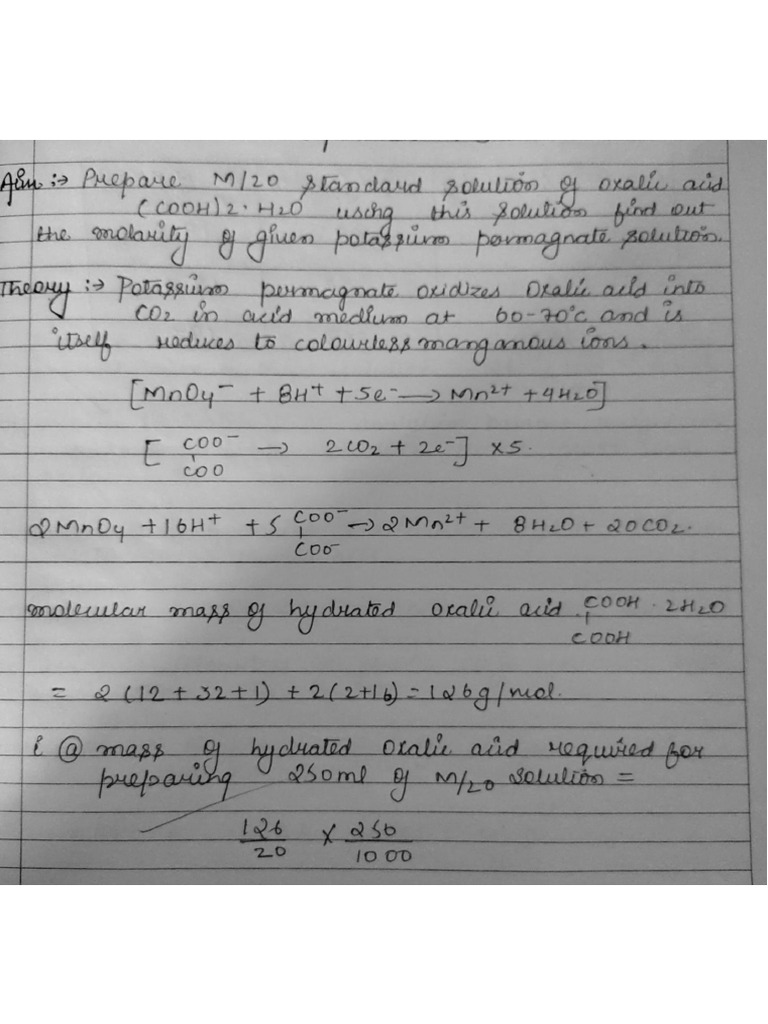 Aim :→ Prepare M/20 standard solution of oxalic acid
(COOH)2·H2O using this solution find out
the molarity of given potassium permagnate solution.
Theory :→ Potassium permagnate oxidizes Oxalic acid into
CO2 in acid medium at 60-70°C and is
itself reduces to colourless manganous ions.
[MnO4⁻ + 8H⁺ + 5e⁻ → Mn²⁺ + 4H2O]
[ COO⁻ → 2CO2 + 2e⁻] ×5.
COO
2MnO4 + 16H⁺ + 5 COO⁻ → 2Mn²⁺ + 8H2O + 20CO2.
COO⁻
molecular mass of hydrated oxalic acid COOH · 2H2O
COOH
= 2(12 + 32 + 1) + 2(2+16) = 126g/mol.
i @ mass of hydrated Oxalic acid required for
preparing 250ml of M/20 solution =
126/20 × 250/1000